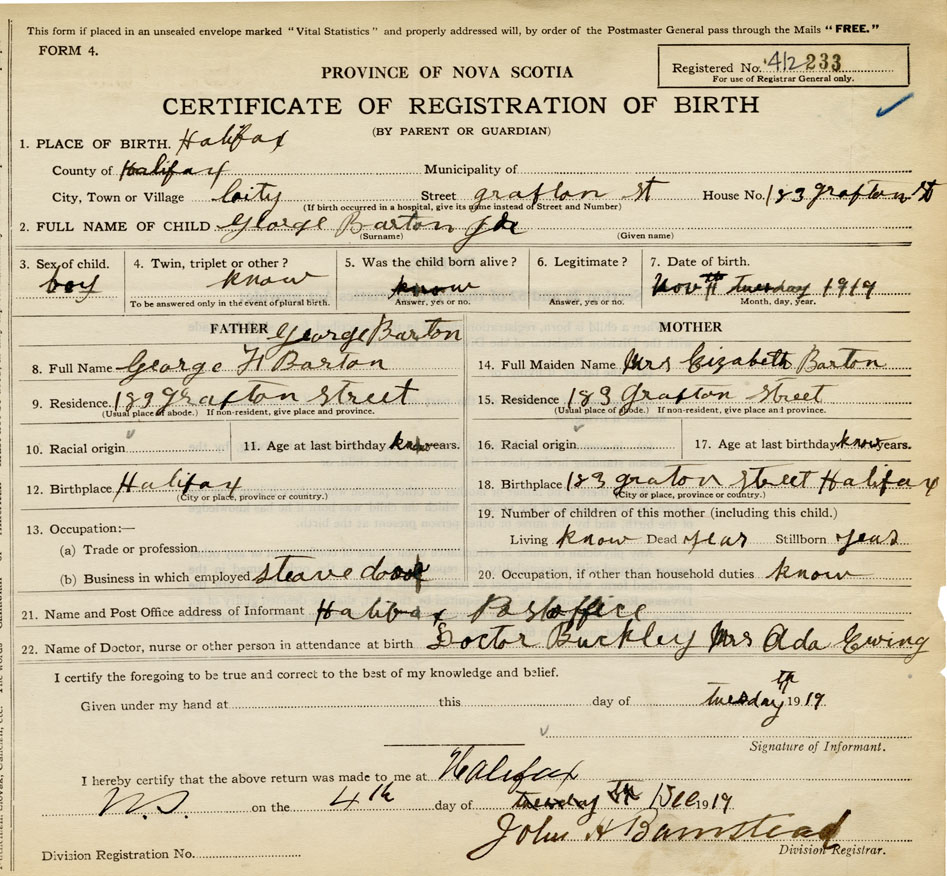 This form if placed in an unsealed envelope marked "Vital Statistics" and properly addressed will, by order of the Postmaster General pass through the Mails "FREE."
FORM 4.
Registered No. 412 233
For use of Registrar General only.
PROVINCE OF NOVA SCOTIA
CERTIFICATE OF REGISTRATION OF BIRTH
(BY PARENT OR GUARDIAN)
1. PLACE OF BIRTH. Halifax
County of Halifax Municipality of
City, Town or Village City Street grafton St House No. 183 grafton St
(If birth occurred in a hospital, give its name instead of Street and Number)
2. FULL NAME OF CHILD George Barton
(Surname) (Given name)
3. Sex of child. 4. Twin, triplet or other? 5. Was the child born alive? 6. Legitimate? 7. Date of birth.
boy know know Nov 11th tuesday 1919
To be answered only in the event of plural birth. Answer, yes or no. Answer, yes or no. Month, day, year.
FATHER George Barton MOTHER
8. Full Name George H Barton 14. Full Maiden Name Mrs Elizabeth Barton
9. Residence. 189 grafton Street 15. Residence 183 Grafton Street
(Usual place of abode.) If non-resident, give place and province. (Usual place of abode.) If non-resident, give place and province.
10. Racial origin 11. Age at last birthday know years. 16. Racial origin 17. Age at last birthday know years.
12. Birthplace Halifax 18. Birthplace 183 graton Street Halifax
(City or place, province or country.) (City or place, province or country.)
13. Occupation:— 19. Number of children of this mother (including this child.)
(a) Trade or profession Living know Dead year Stillborn year
(b) Business in which employed steavedoor 20. Occupation, if other than household duties know
21. Name and Post Office address of Informant Halifax Postoffice
22. Name of Doctor, nurse or other person in attendance at birth Doctor Buckley Mrs Ada Ewing
I certify the foregoing to be true and correct to the best of my knowledge and belief.
Given under my hand at this day of tuesday 11th 1919.
Signature of Informant.
I hereby certify that the above return was made to me at Halifax
N.S. on the 4th day of tuesday Dec 1919
John H Barnstead
Division Registration No. Division Registrar.